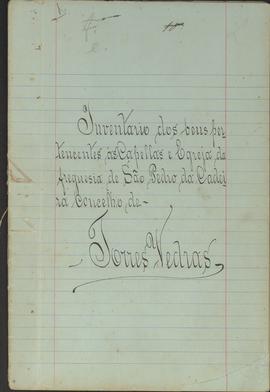 Inventario dos bens per
tencentes ás Capellas e Egreja da
freguesia de São Pedro da Cadei
ra Concelho de-
Torres Vedras